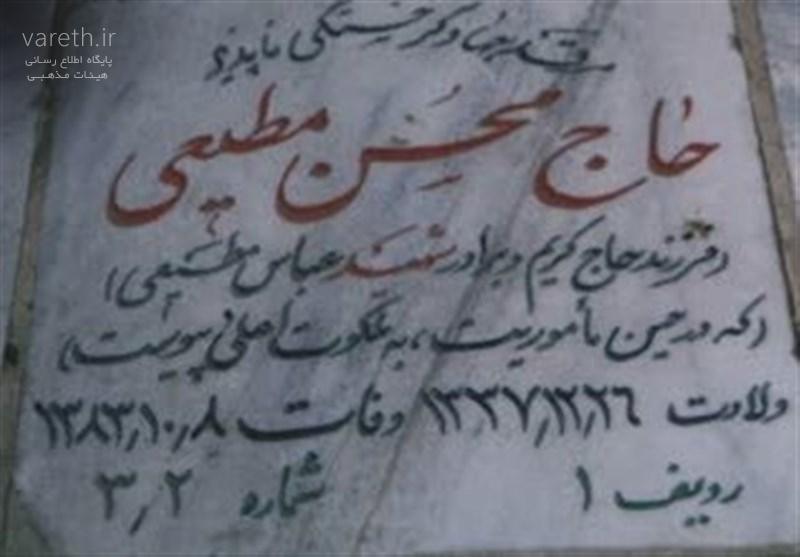 vareth.ir
پایگاه اطلاع رسانی
هیئات مذهبی
خستگی ناپذیر
حاج محسن مطیعی
(فرزند حاج کریم و برادر شهید عباس مطیعی)
(که در حین مأموریت، به ملکوت اعلی پیوست)
ولادت ۱۳۳۷٫۱۲٫۲۶ وفات ۱۳۸۳٫۱۰٫۸
ردیف ۱ شماره ۳٫۲